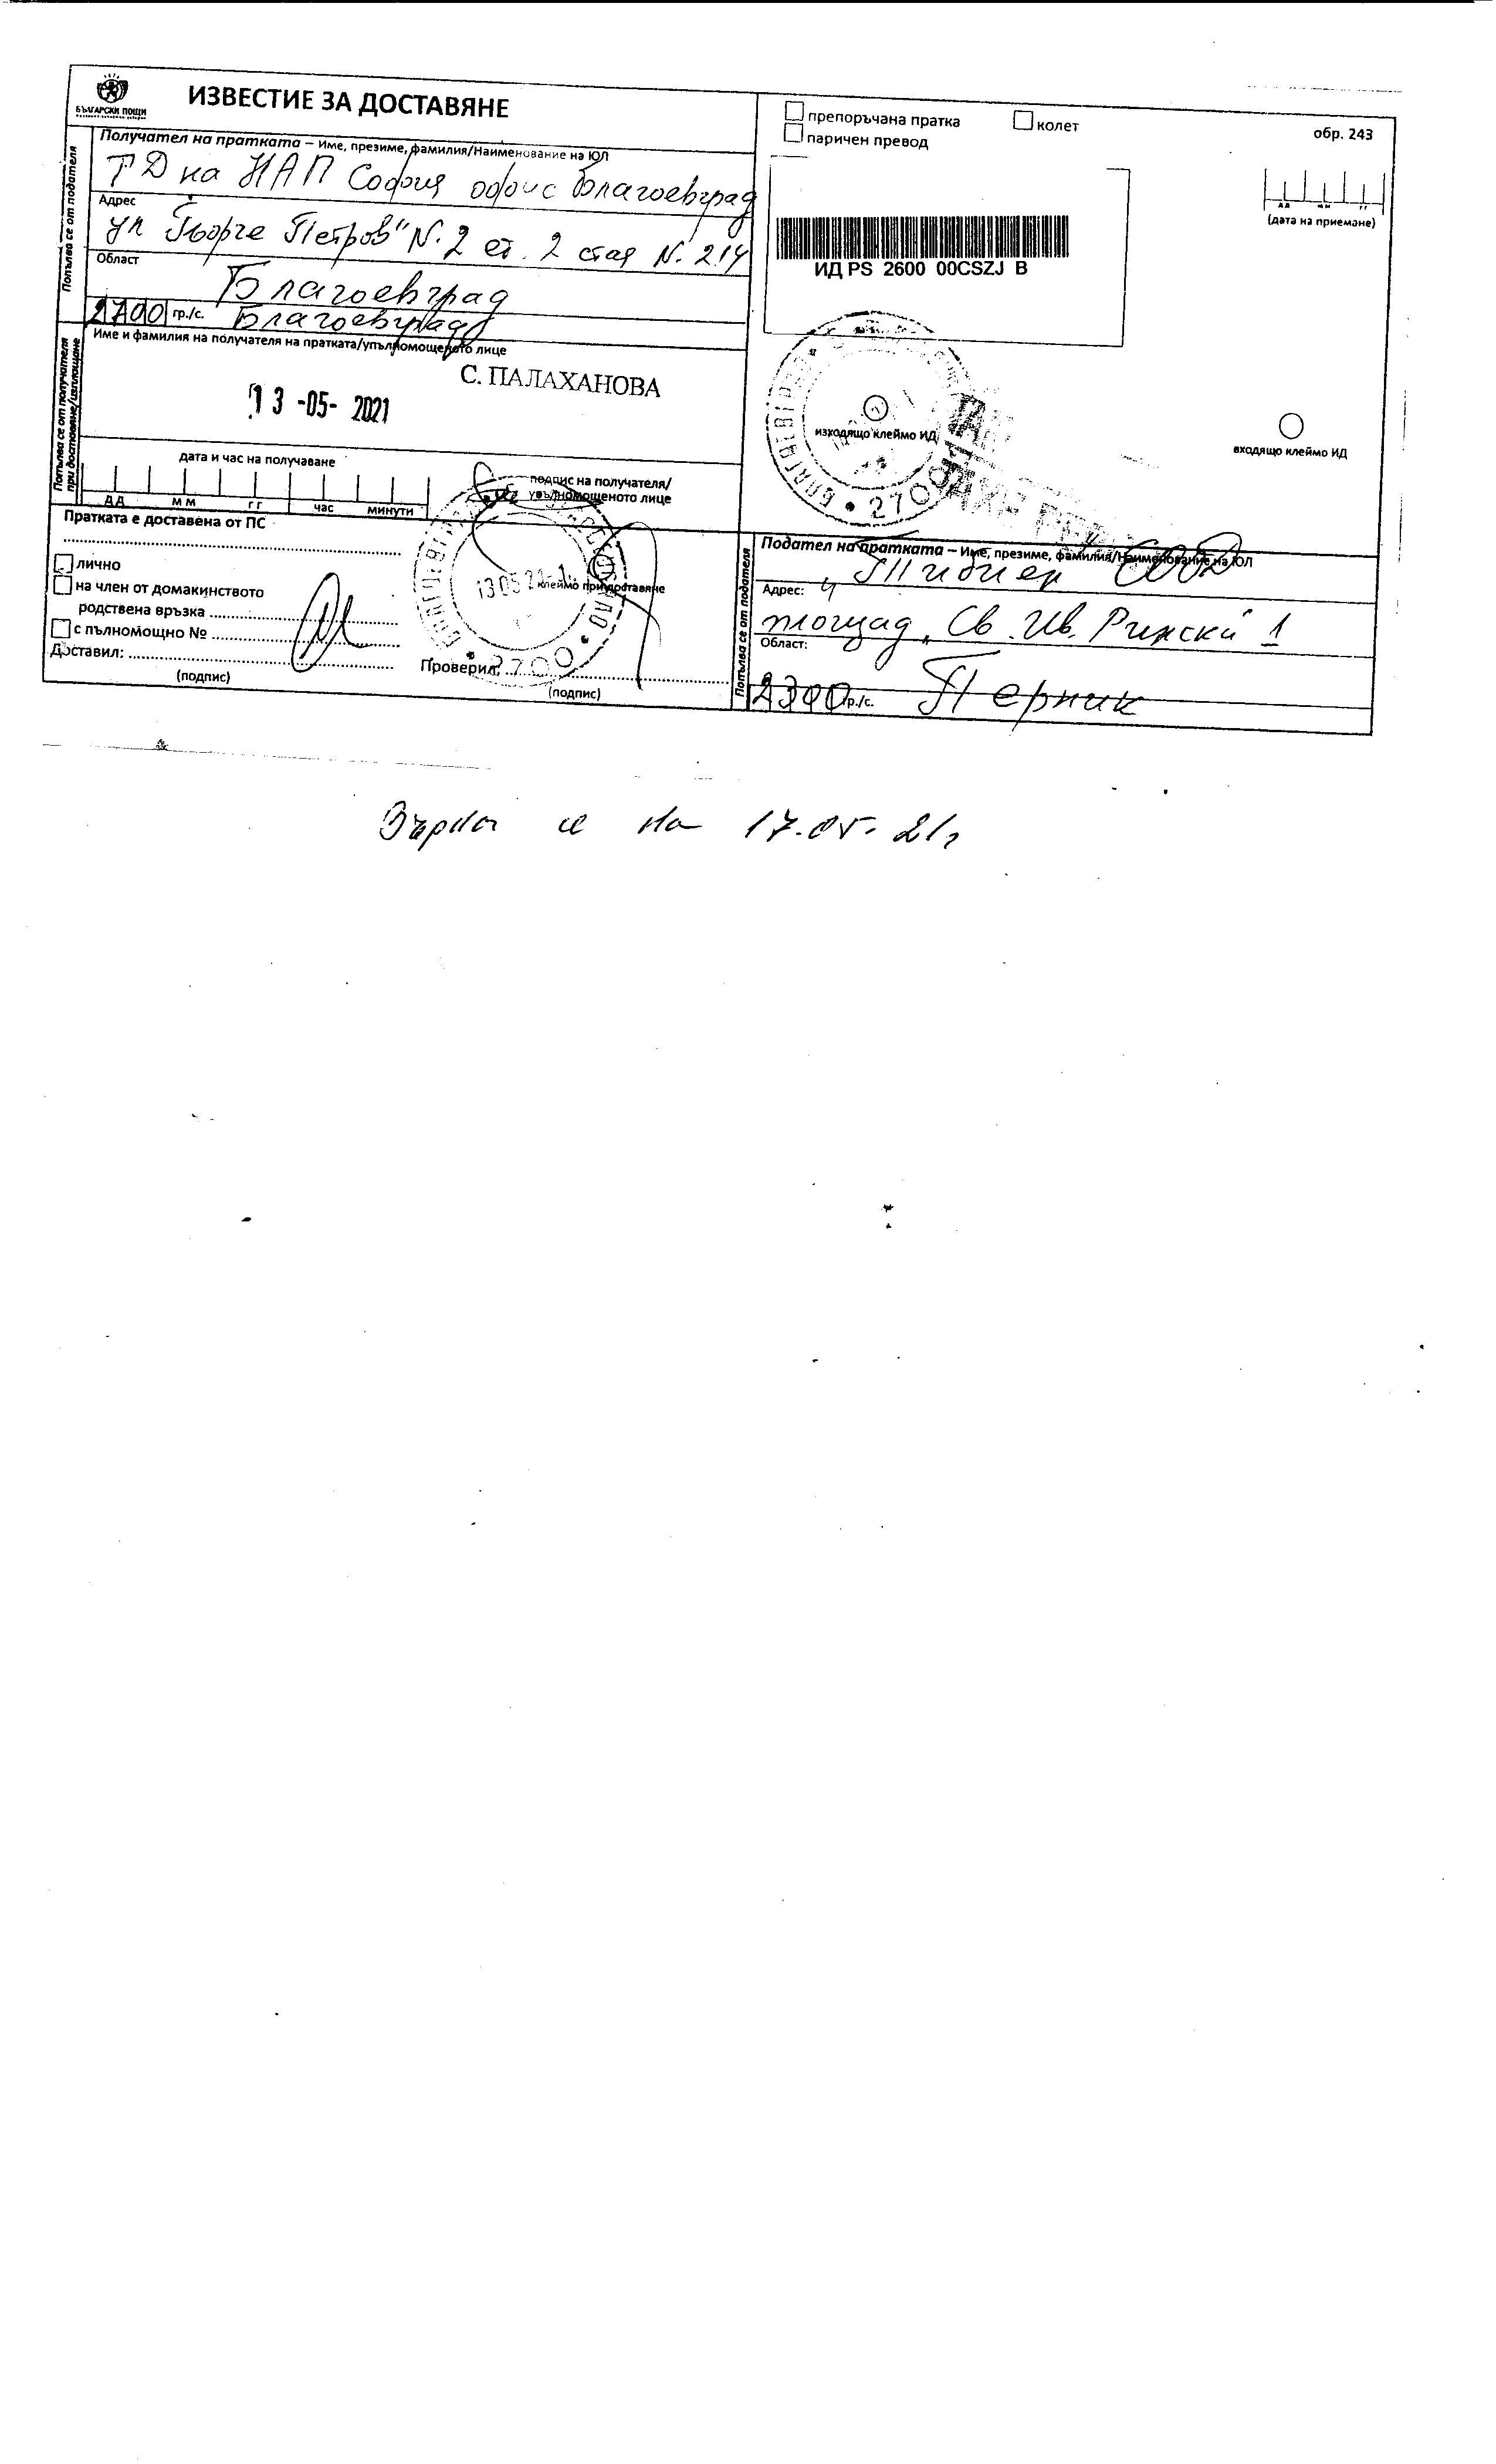 БЪЛГАРСКИ ПОЩИ
ИЗВЕСТИЕ ЗА ДОСТАВЯНЕ
Попълва се от подателя
Получател на пратката – Име, презиме, фамилия/Наименование на ЮЛ
ТД на НАП София офис Благоевград
Адрес
ул "Гьорче Петров" N. 2 ет. 2 стая N. 214
Област
Благоевград
2700 гр./с. Благоевград
Попълва се от получателя при доставяне/изплащане
Име и фамилия на получателя на пратката/упълномощеното лице
С. ПАЛАХАНОВА
13 -05- 2021
дата и час на получаване
ДД ММ ГГ час минути
подпис на получателя/
упълномощеното лице
Пратката е доставена от ПС
лично
на член от домакинството
родствена връзка
с пълномощно №
Доставил:
(подпис)
клеймо при доставяне
130521
2700
Проверил:
(подпис)
препоръчана пратка
колет
паричен превод
обр. 243
ИД PS 2600 00CSZJ B
ДД ММ ГГ
(дата на приемане)
изходящо клеймо ИД
БЛАГОЕВГРАД
2700
входящо клеймо ИД
Попълва се от подателя
Подател на пратката – Име, презиме, фамилия/Наименование на ЮЛ
ООД
Адрес:
площад "Св. Ив. Рилски" 1
Област:
2300 гр./с. Перник
Върна се на 17.05.21г